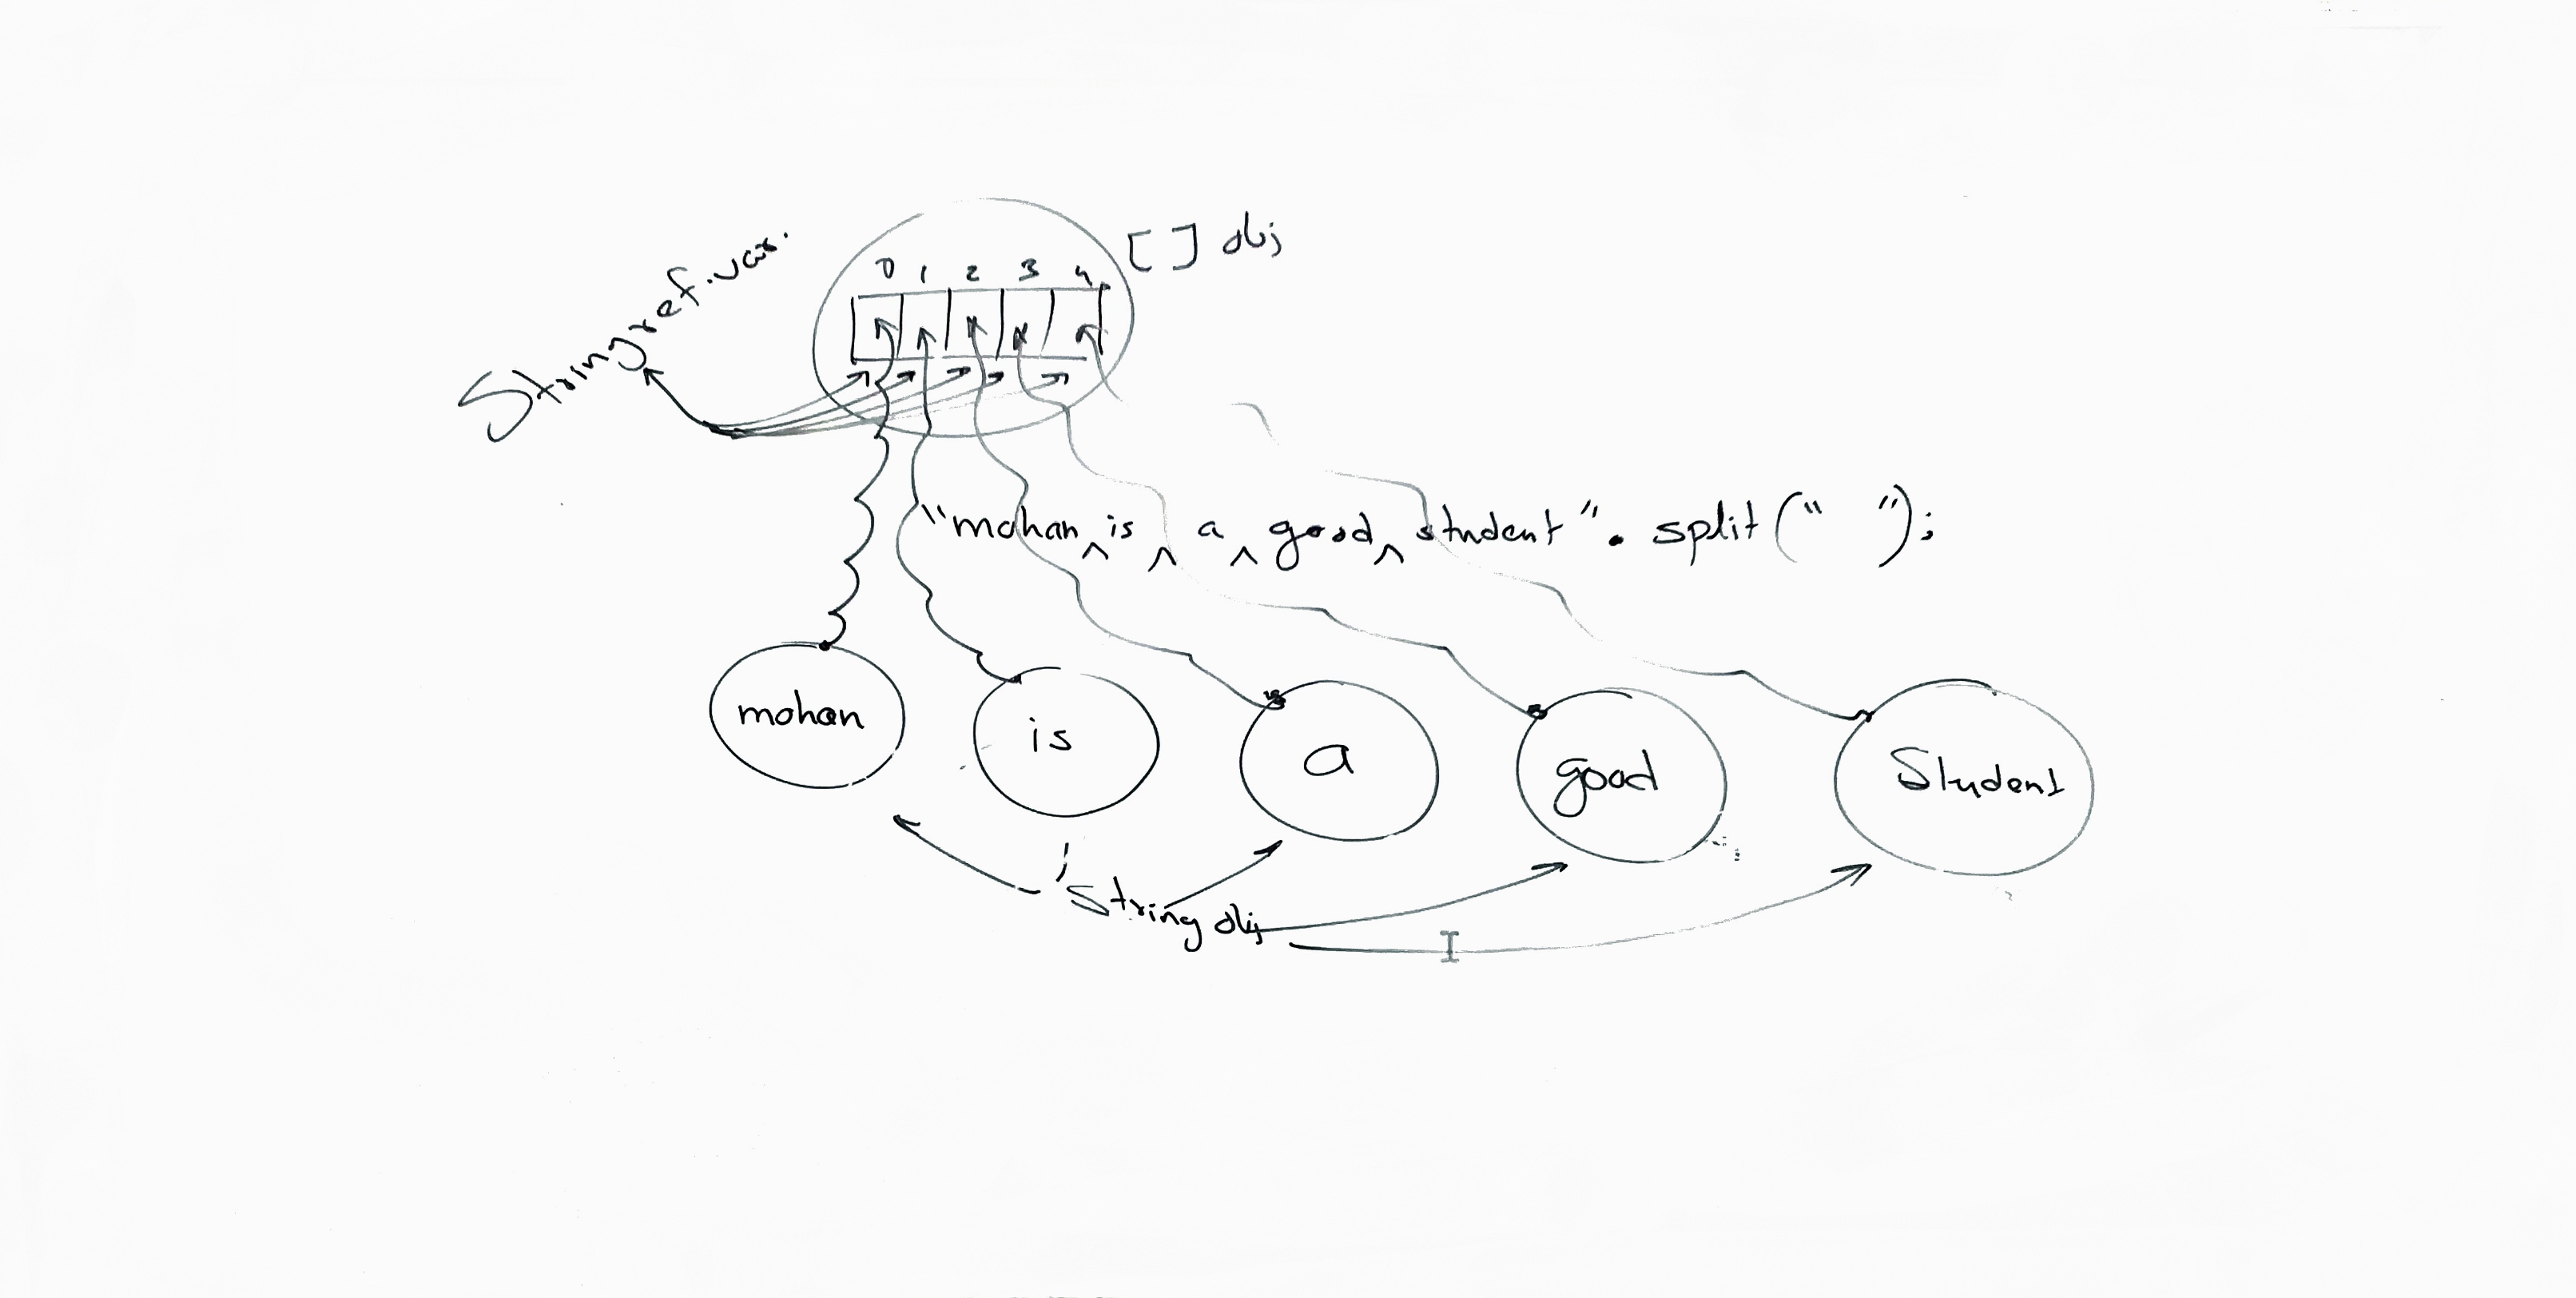 [ ] obj
String ref.var.
0 1 2 3 4
"mohan ^ is ^ a ^ good ^ student" . split (" ");
mohan
is
a
good
Student
String obj